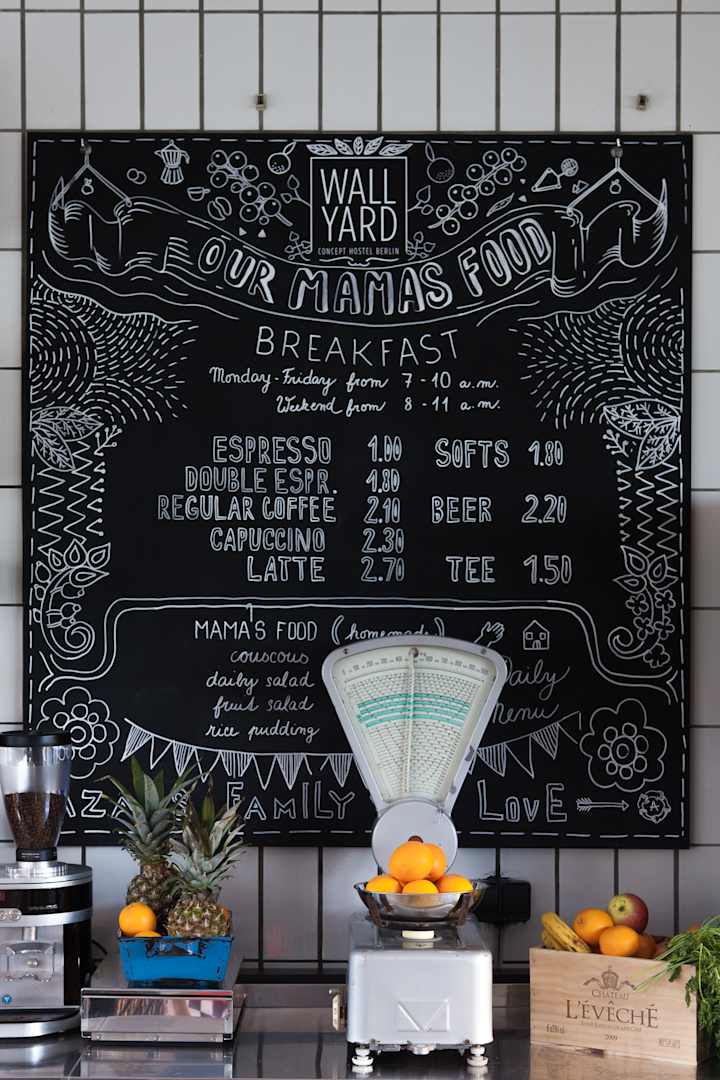 WALL
YARD
CONCEPT HOSTEL BERLIN
OUR MAMAS FOOD
BREAKFAST
Monday-Friday from 7-10 a.m.
Weekend from 8-11 a.m.
ESPRESSO 1.00 SOFTS 1.80
DOUBLE ESPR. 1.80
REGULAR COFFEE 2.10 BEER 2.20
CAPUCCINO 2.30
LATTE 2.70 TEE 1.50
MAMA'S FOOD (homemade)
couscous
daiby salad Daily
fruit salad Menu
rice pudding
FAMILY LOVE
CHATEAU
L'ÉVÊCHÉ
2009